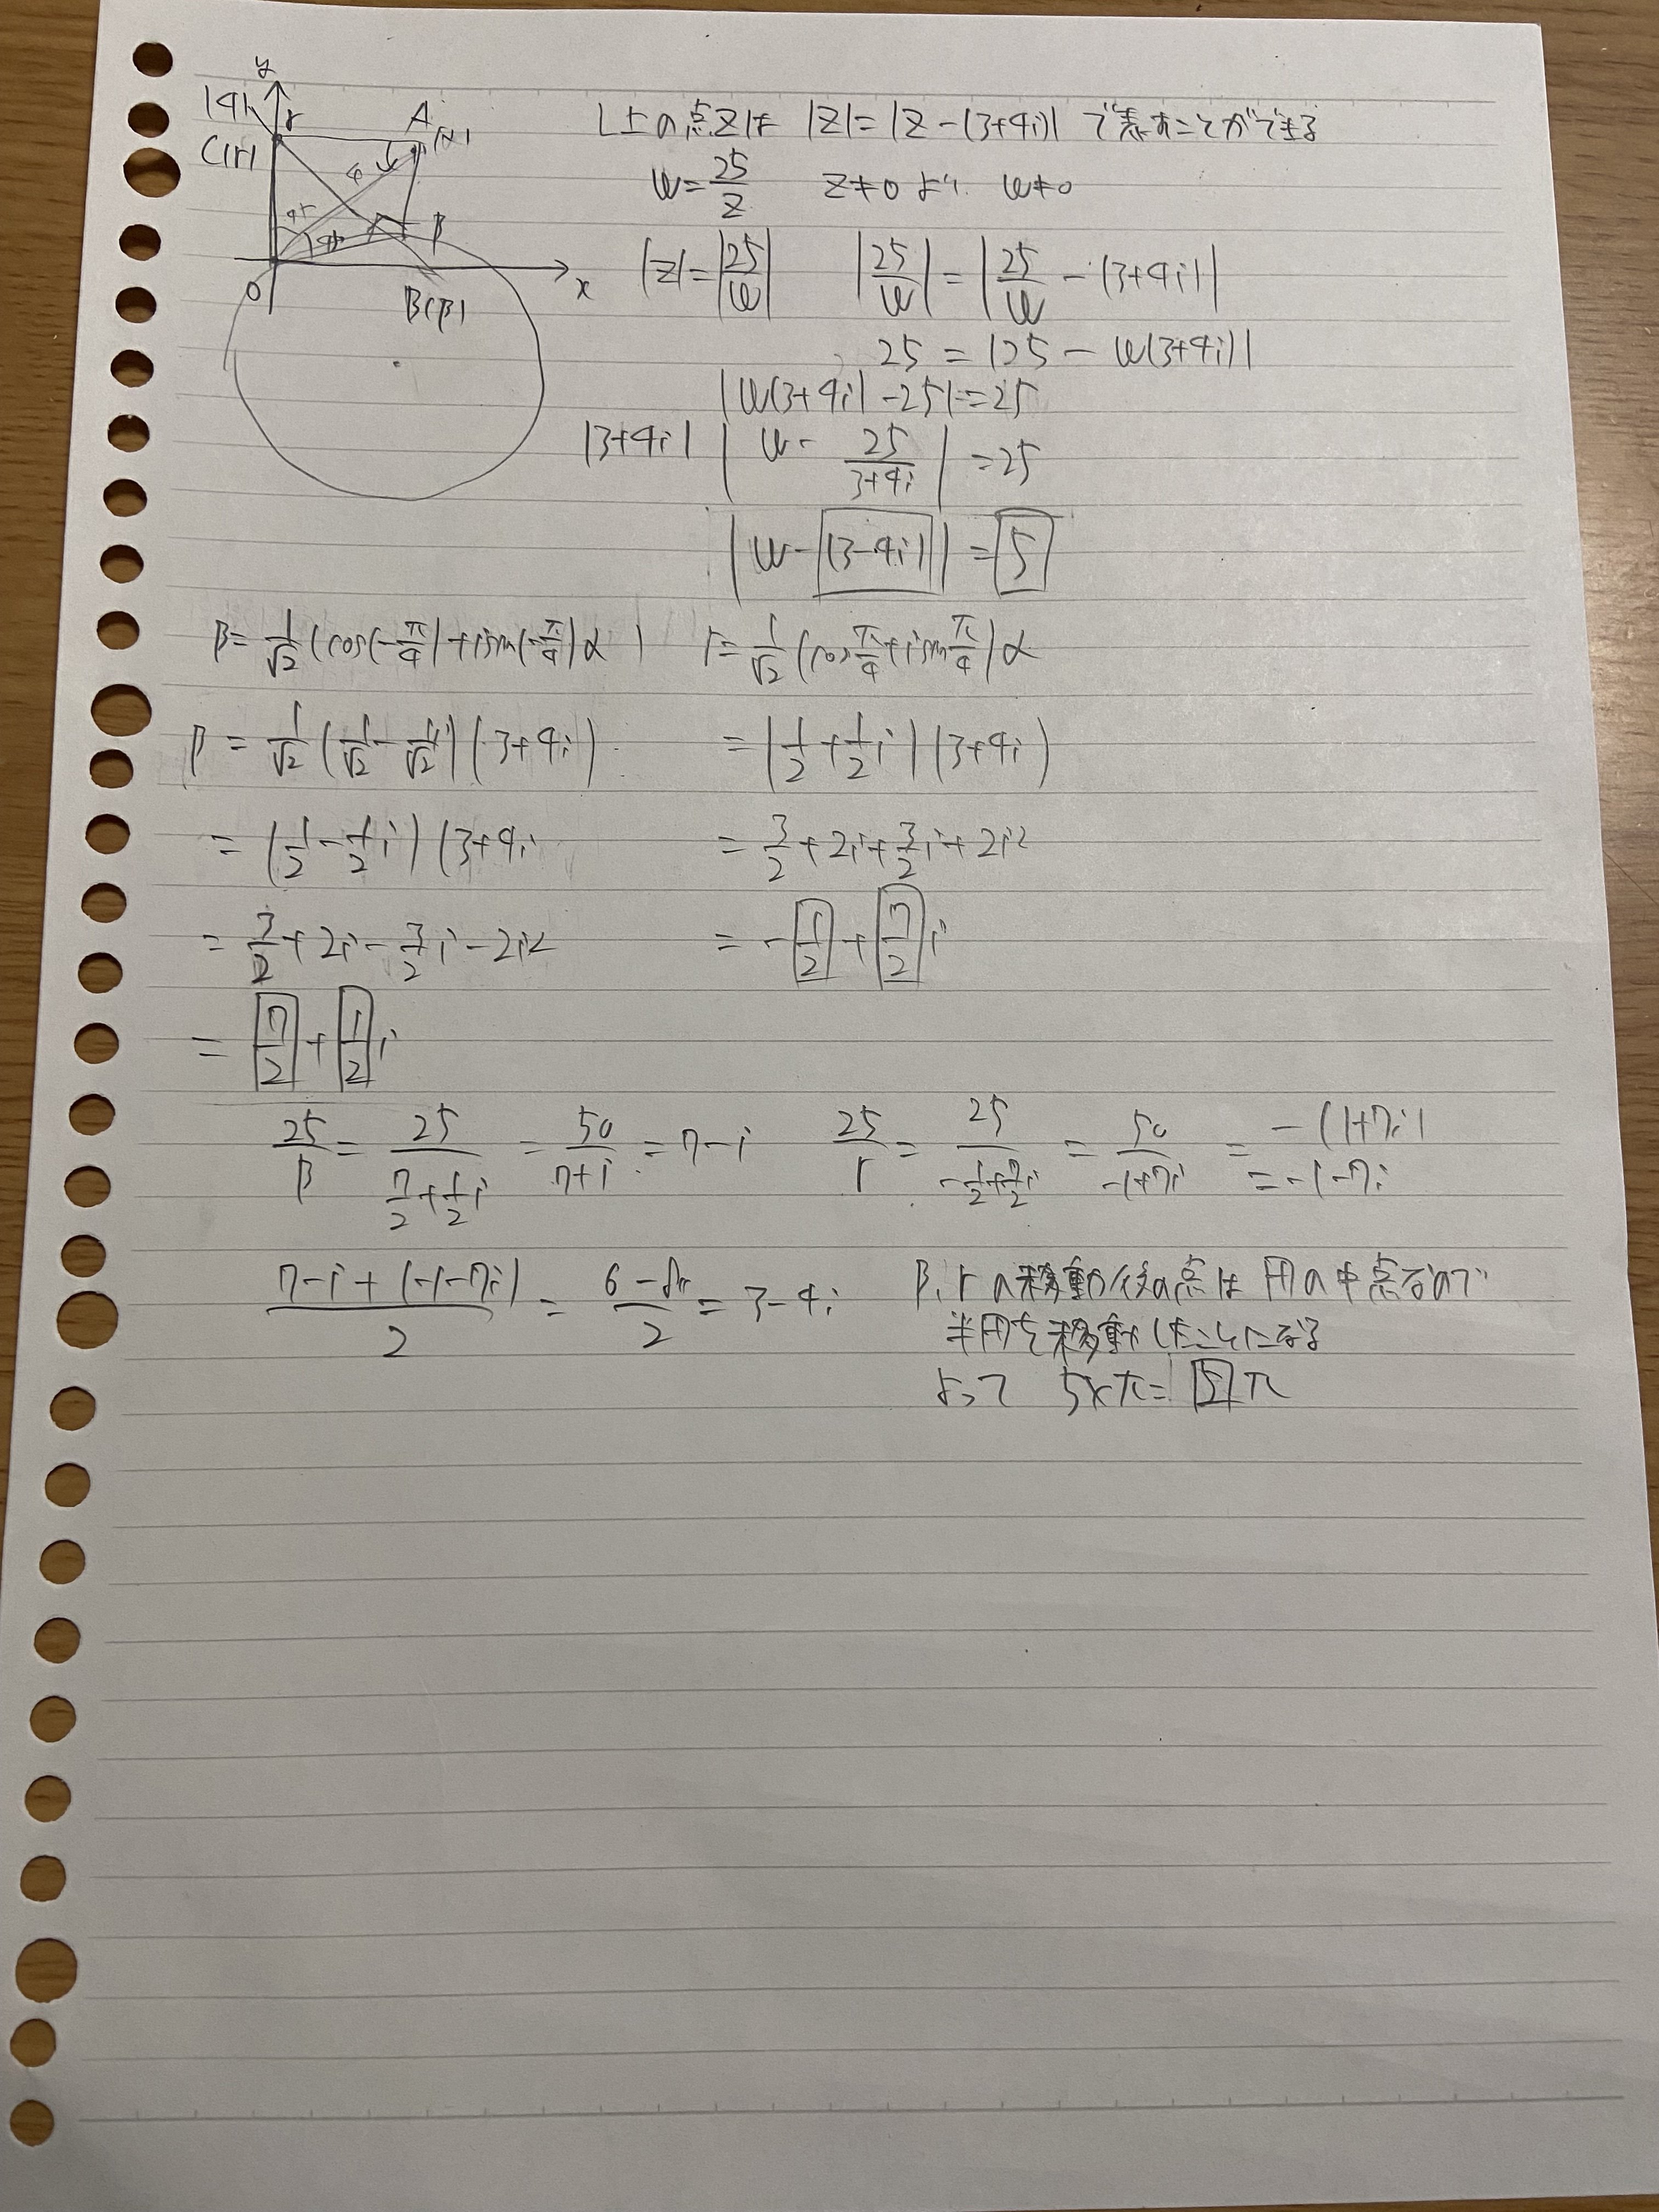 y
(4)
r
C(r)
A(α)
β
O
x
B(β)
L上の点zは |z|=|z-(3+4i)| で表すことができる
w=25/z z≠0より w≠0
|z|=|25/w| |25/w|=|25/w-(3+4i)|
25=|25-w(3+4i)|
|w(3+4i)-25|=25
|3+4i||w-25/(3+4i)|=25
|w-(3-4i)|=5
β=1/√2(cos(-π/4)+isin(-π/4))α r=1/√2(cosπ/4+isinπ/4)α
β=1/√2(1/√2-i/√2)(3+4i) =(1/2+1/2i)(3+4i)
=(1/2-1/2i)(3+4i =3/2+2i+3/2i+2i²
=3/2+2i-3/2i-2i² =-1/2+7/2i
=7/2+1/2i
25/β=25/(7/2+1/2i)=50/(7+i)=7-i 25/r=25/(-1/2+7/2i)=50/(-1+7i)=-(1+7i)
=-1-7i
(7-i+(-1-7i))/2=(6-8i)/2=3-4i β,rの移動後の点は円の中点なので
半円を移動したことになる
よって 5×π=5π